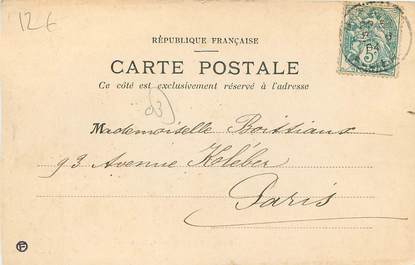 126
RÉPUBLIQUE FRANÇAISE
CARTE POSTALE
Ce côté est exclusivement réservé à l'adresse
83
Mademoiselle Boissians
93 Avenue Kléber
Paris